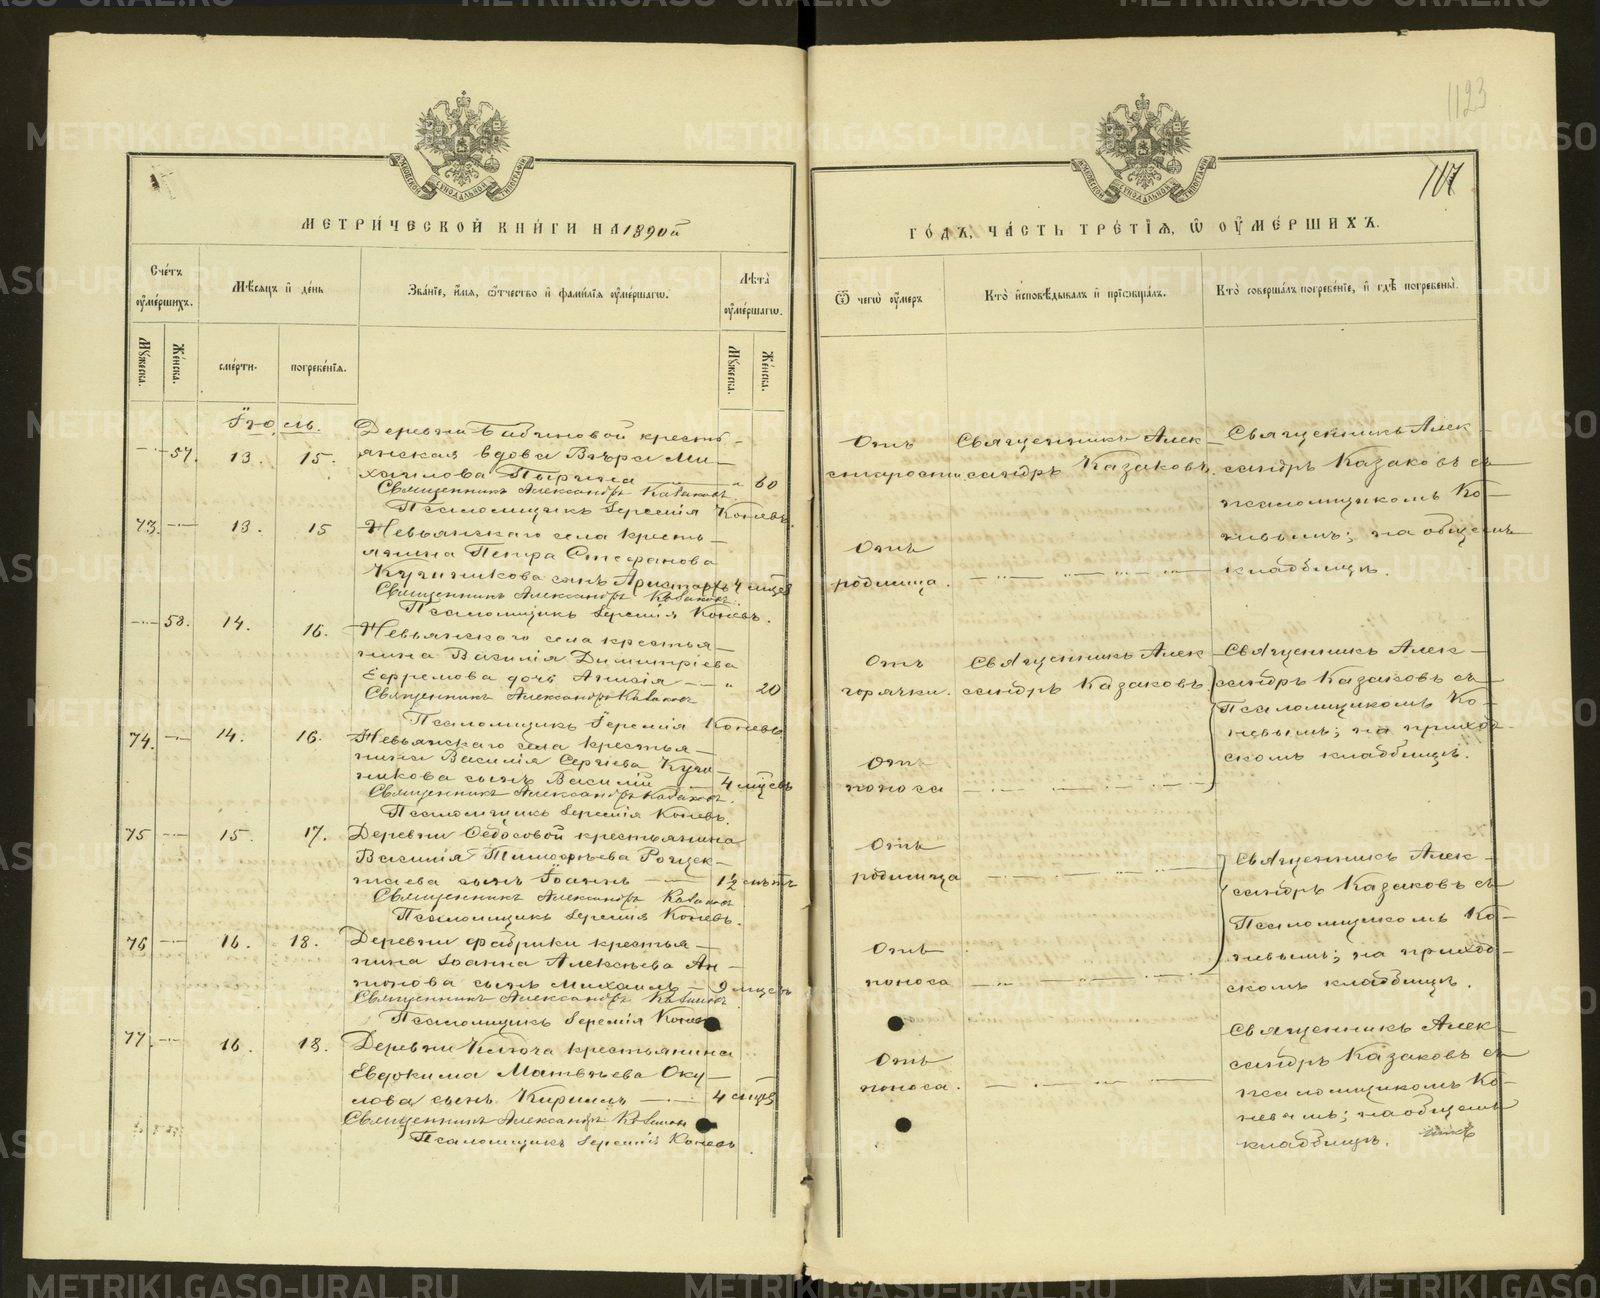 1123
117
МЕТРИ́ЧЕСКОЙ КНИ́ГИ НА 1890й
ГО́ДЪ, ЧА́СТЬ ТРЕ́ТІѦ, Ѿ ОУ҆МЕ́РШИХЪ.
Сче́тъ
оу҆ме́ршихъ.
Мѣсяцъ и҆ де́нь
Зва́ніе, и҆́мя, ѻ҆́тчество и҆ фами́лія оу҆ме́ршагѡ.
Лѣта̀
оу҆ме́ршагѡ.
Ѿ чегѡ̀ оу҆́меръ
Кто̀ и҆сповѣ́дывалъ и҆ прїѡбща́лъ.
Кто̀ соверша́лъ погребе́нїе, и҆ гдѣ̀ погребены̀.
Мꙋ́жеска.
Же́нска.
сме́рти.
погребе́нїя.
Мꙋ́жеска.
Же́нска.
Іюль.
57. 13. 15.
Деревни Бабиновой кресть-
янская вдова Вѣра Ми-
хаилова 60
Священникъ Александръ Казаковъ.
Псаломщикъ Іеремія Коневъ.
Отъ
старости
Священникъ Алек-
сандръ Казаковъ.
Священникъ Алек-
сандръ Казаковъ съ
псаломщикомъ Ко-
невымъ; на общемъ
кладбищѣ.
73. 13. 15
Невьянскаго села кресть-
янина Петра Стефанова
сынъ Аристархъ 4 мцев
Священникъ Александръ Казаковъ
Псаломщикъ Іеремія Коневъ.
Отъ
родимца.
58. 14. 16.
Невьянскаго села крестья-
нина Василія Димитріева
Ефремова дочь Анисія 20
Священникъ Александръ Казаковъ
Псаломщикъ Іеремія Коневъ.
Отъ
горячки.
Священникъ Алек-
сандръ Казаковъ.
Священникъ Алек-
сандръ Казаковъ съ
Псаломщикомъ Ко-
невымъ; на приход-
скомъ кладбищѣ.
74. 14. 16.
Невьянскаго села крестья-
нина Василія Сергіева
сынъ Василій 4 мцевъ
Священникъ Александръ Казаковъ.
Псаломщикъ Іеремія Коневъ.
Отъ
поноса
75 15. 17.
Деревни Ѳедосовой крестьянина
Василія Тимоѳѣева
сынъ Іоаннъ 1½ лѣтъ
Священникъ Александръ Казаковъ
Псаломщикъ Іеремія Коневъ.
Отъ
родимца
Священникъ Алек-
сандръ Казаковъ съ
Псаломщикомъ Ко-
невымъ; на приход-
скомъ кладбищѣ.
76 16. 18.
Деревни Фабрики крестья-
нина Іоанна Алексѣева Ан-
сынъ Михаилъ 9 мцевъ
Священникъ Александръ Казаковъ
Псаломщикъ Іеремія Коневъ
Отъ
поноса
77. 16. 18.
Деревни Ключа крестьянина
Евдокима Матвѣева Оку-
лова сынъ Кириллъ 4 мцев
Священникъ Александръ Казаковъ
Псаломщикъ Іеремія Коневъ.
Отъ
поноса.
Священникъ Алек-
сандръ Казаковъ съ
псаломщикомъ Ко-
невымъ; на общемъ
кладбищѣ.
METRIKI.GASO-URAL.RU